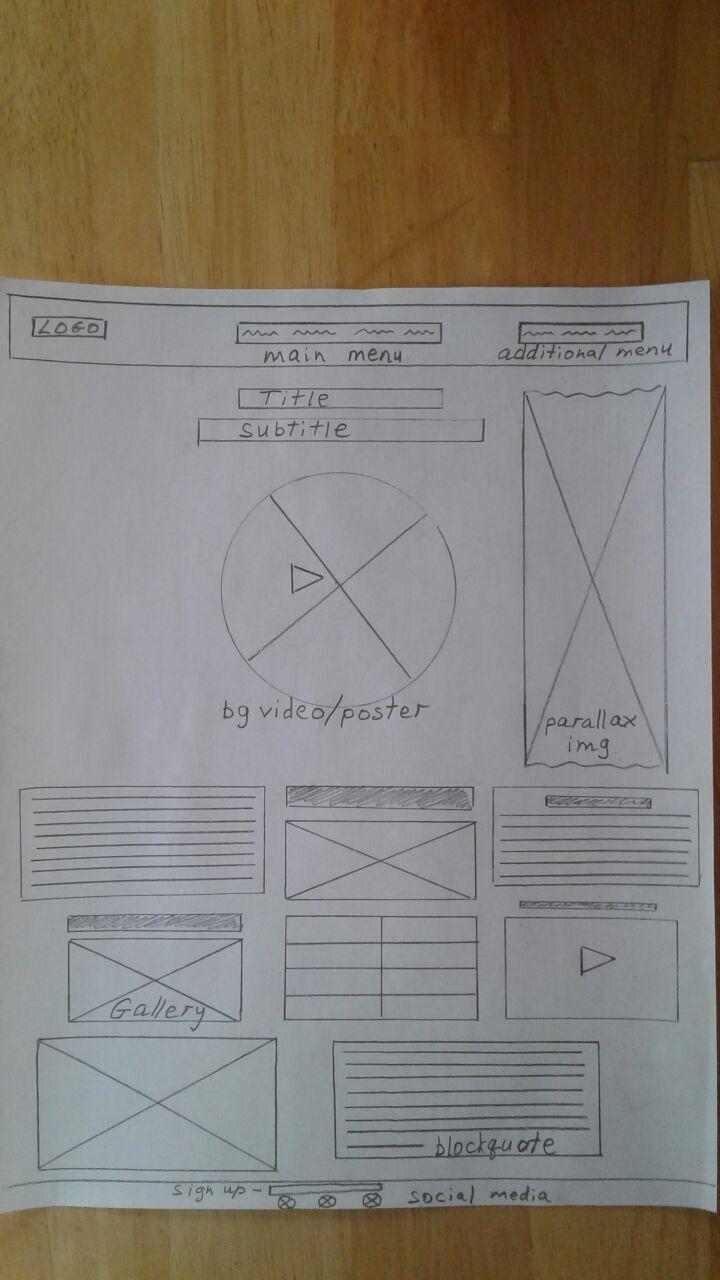 LOGO
main menu
additional menu
Title
Subtitle
bg video/poster
parallax
img
Gallery
blockquote
sign up -
social media